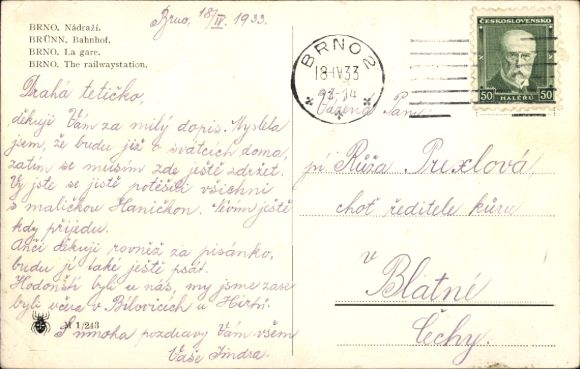 Brno, 18/IV. 1933.
BRNO, Nádraží.
BRÜNN, Bahnhof.
BRNO, La gare.
BRNO, The railwaystation.
Drahá tetičko,
děkuji Vám za milý dopis. Myslela
jsem, že budu již o svátcích doma,
zatím se musím zde ještě zdržet.
Vy jste se jistě potěšili všichni
s maličkou Haničkou. Nevím ještě
kdy přijedu.
Anči děkuji rovněž za písánko,
budu jí také ještě psát.
Hodonští byli u nás, my jsme zase
byli včera v Bílovicích u
S mnoha pozdravy Vám všem
Vaše Jindra.
M 1/243
BRNO 2
18-IV33
ČESKOSLOVENSKO
50 HALÉŘŮ 50
Vážená Paní
pí Růža Prexlová
choť ředitele kůru
v Blatné
Čechy.